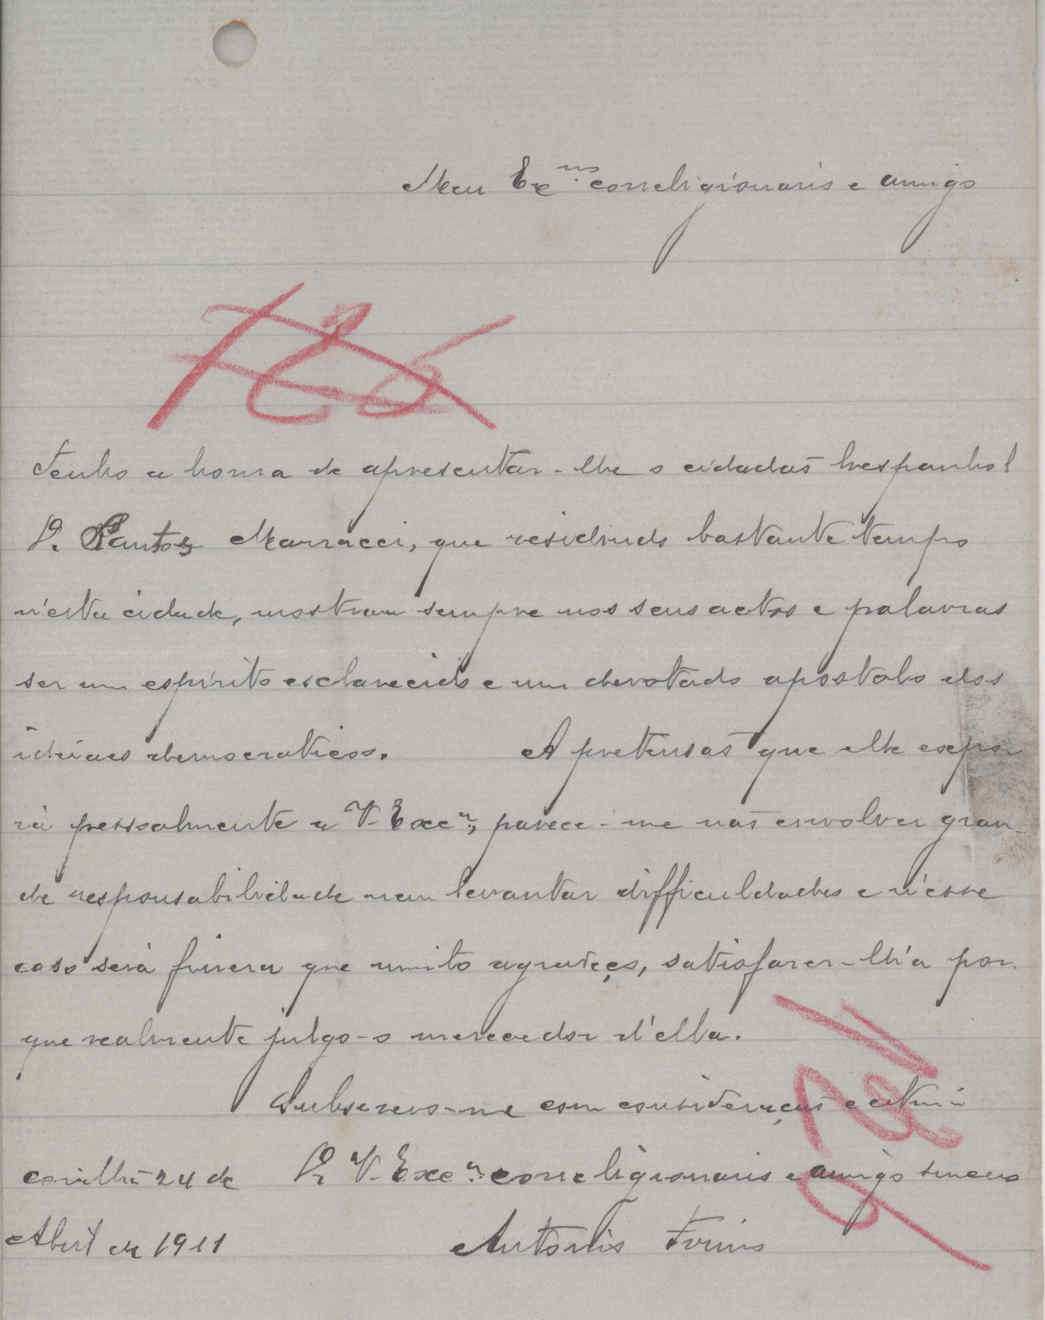 Meu Ex.mo correligionario e amigo
726
Tenho a honra de apresentar-lhe o cidadão hespanhol
D. Santos Marracci, que residindo bastante tempo
n'esta cidade, mostrou sempre nos seus actos e palavras
ser um espirito esclarecido e um devotado apostolo dos
ideiaes democraticos. A pretensão que elle expo-
rá pessoalmente a V. Exc.a, parece-me não envolver gran-
de responsabilidade nem levantar difficuldades e n'esse
caso será fineza que muito agradeço, satisfazer-lh'a por-
que realmente julgo-o merecedor d'ella.
Subscrevo-me com consideração e estima
De V. Exc.a correligionario e amigo sincero
Covilhã 24 de
Abril de 1911
Antonio